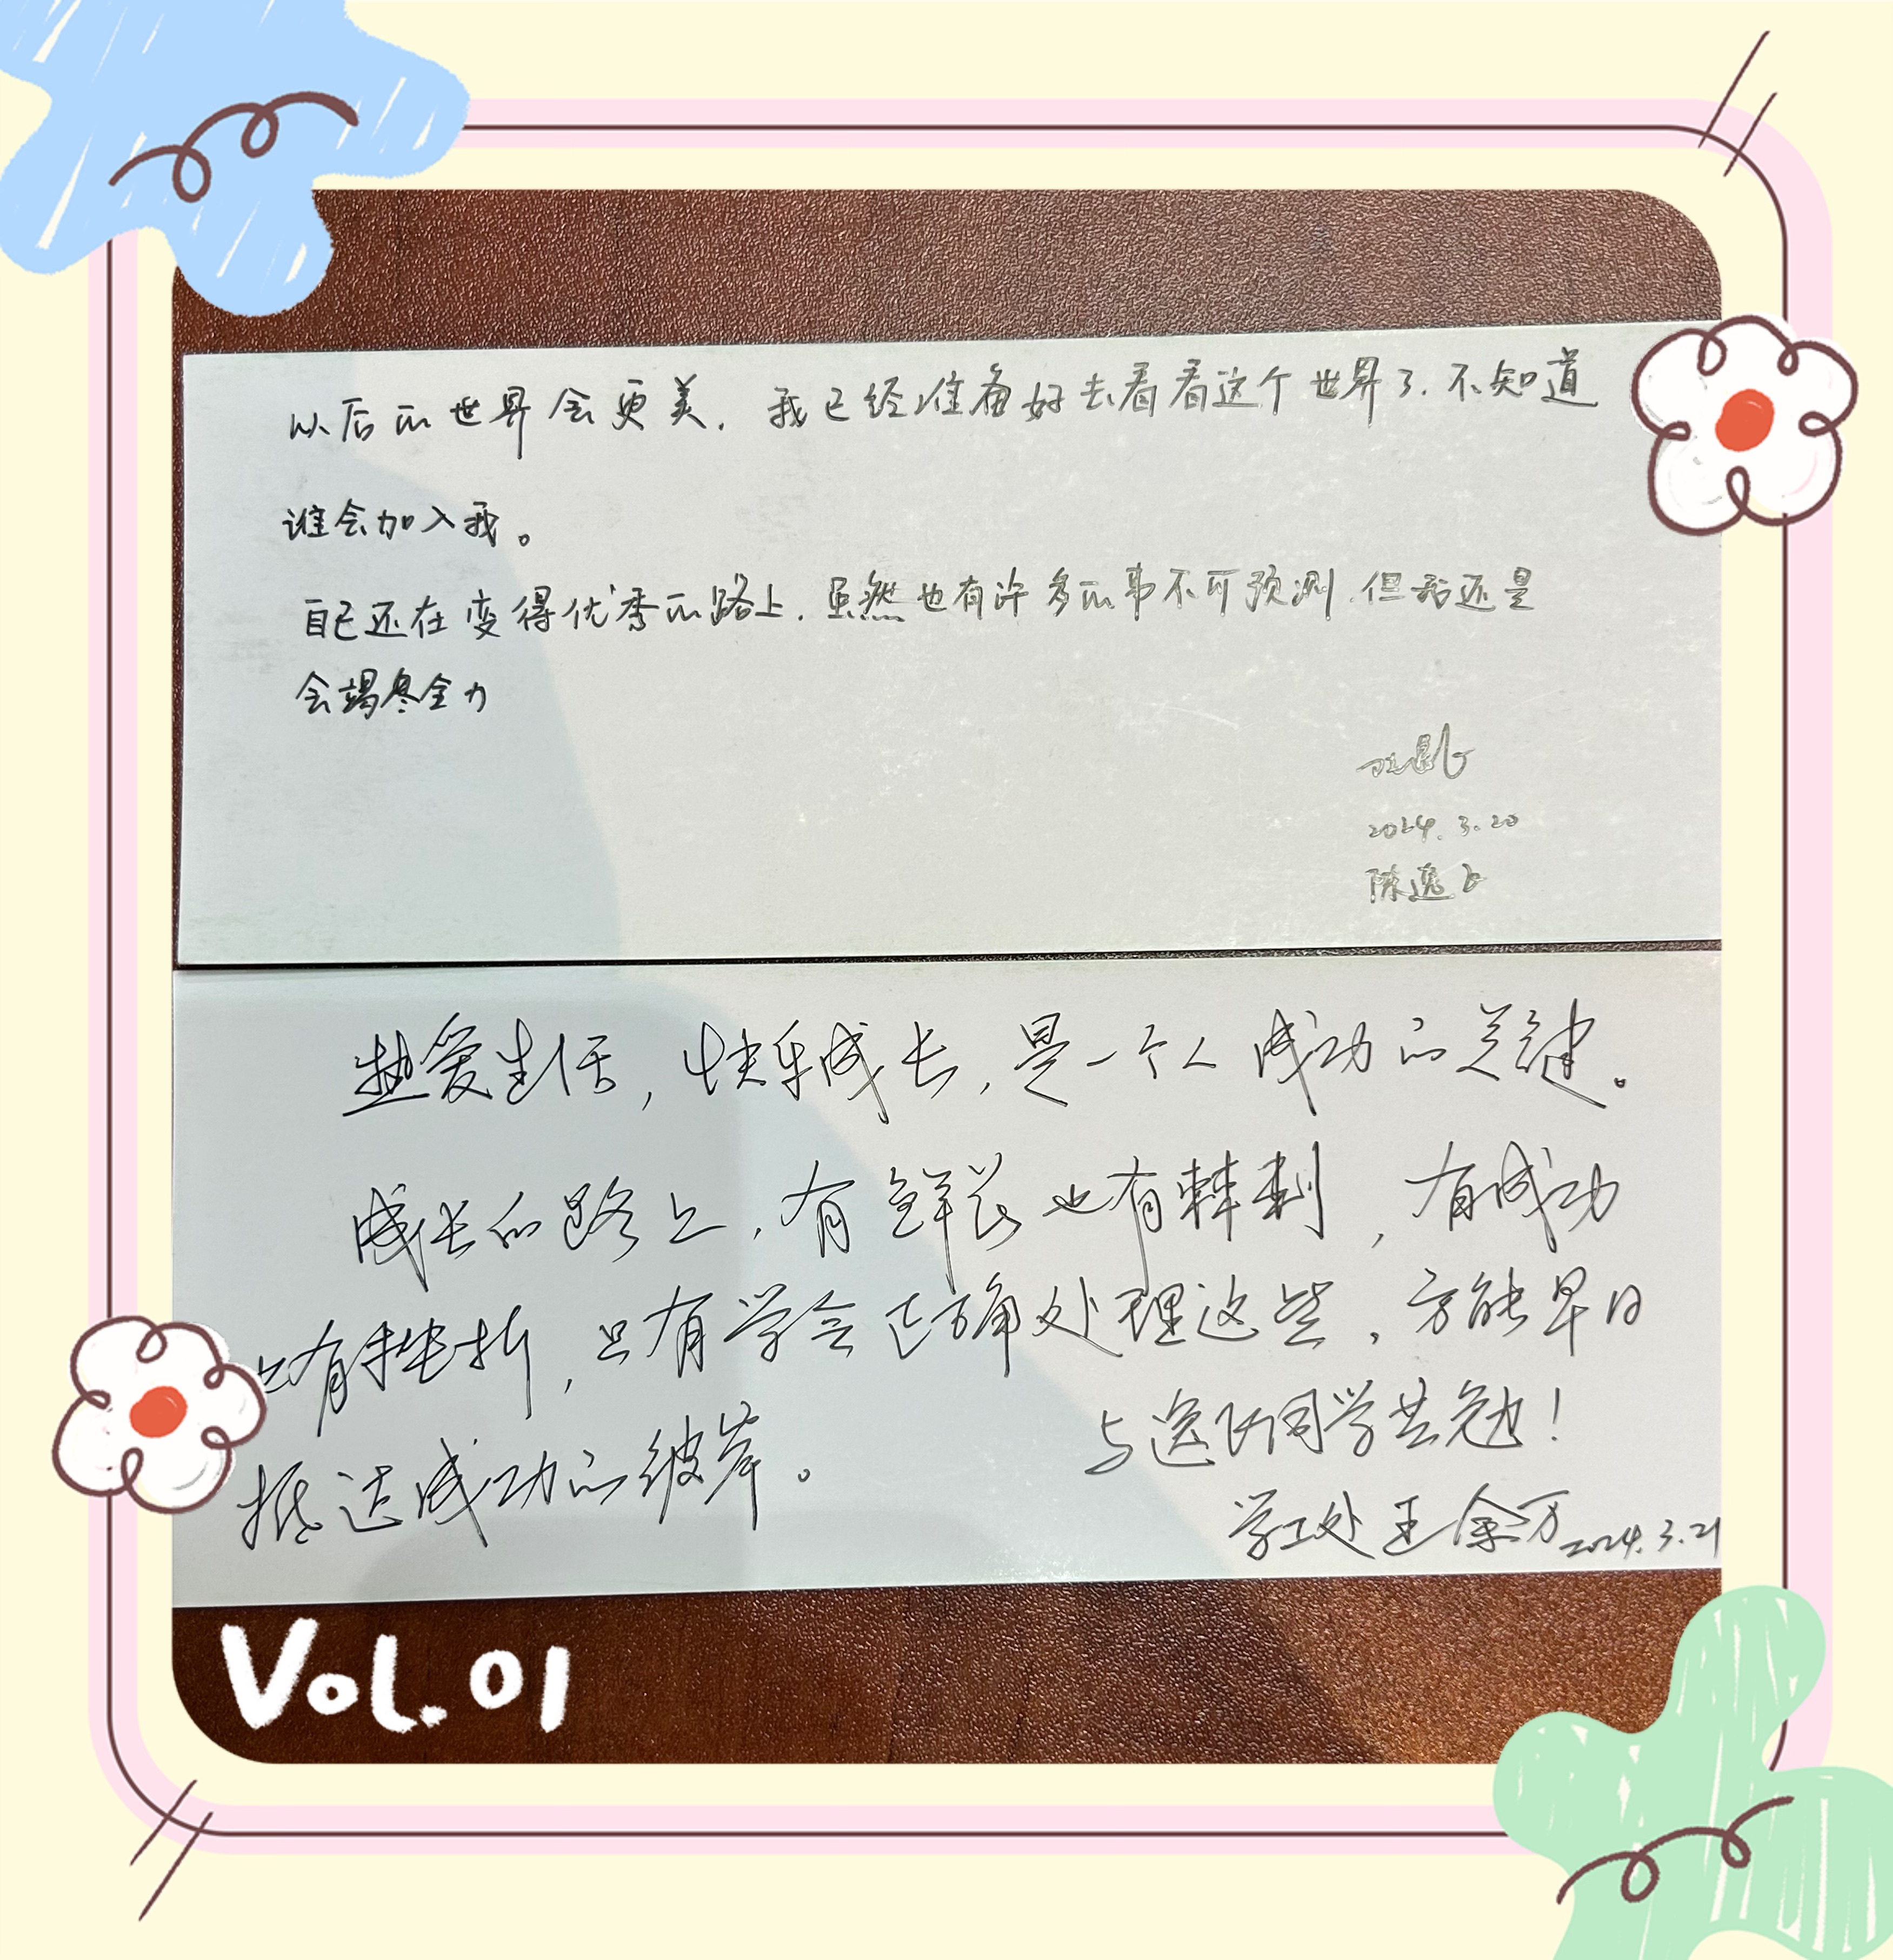 以后的世界会更美，我已经准备好去看看这个世界了，不知道
谁会加入我。
自己还在变得优秀的路上，虽然也有许多的事不可预测，但我还是
会竭尽全力
2024.3.20
陈逸
热爱生活，快乐成长，是一个人成功的关键。
成长的路上，有鲜花也有荆棘，有成功
也有挫折，只有学会正确处理这些，方能早日
抵达成功的彼岸。
与逸飞同学共勉！
学工处 王余万 2024.3.21
Vol.01